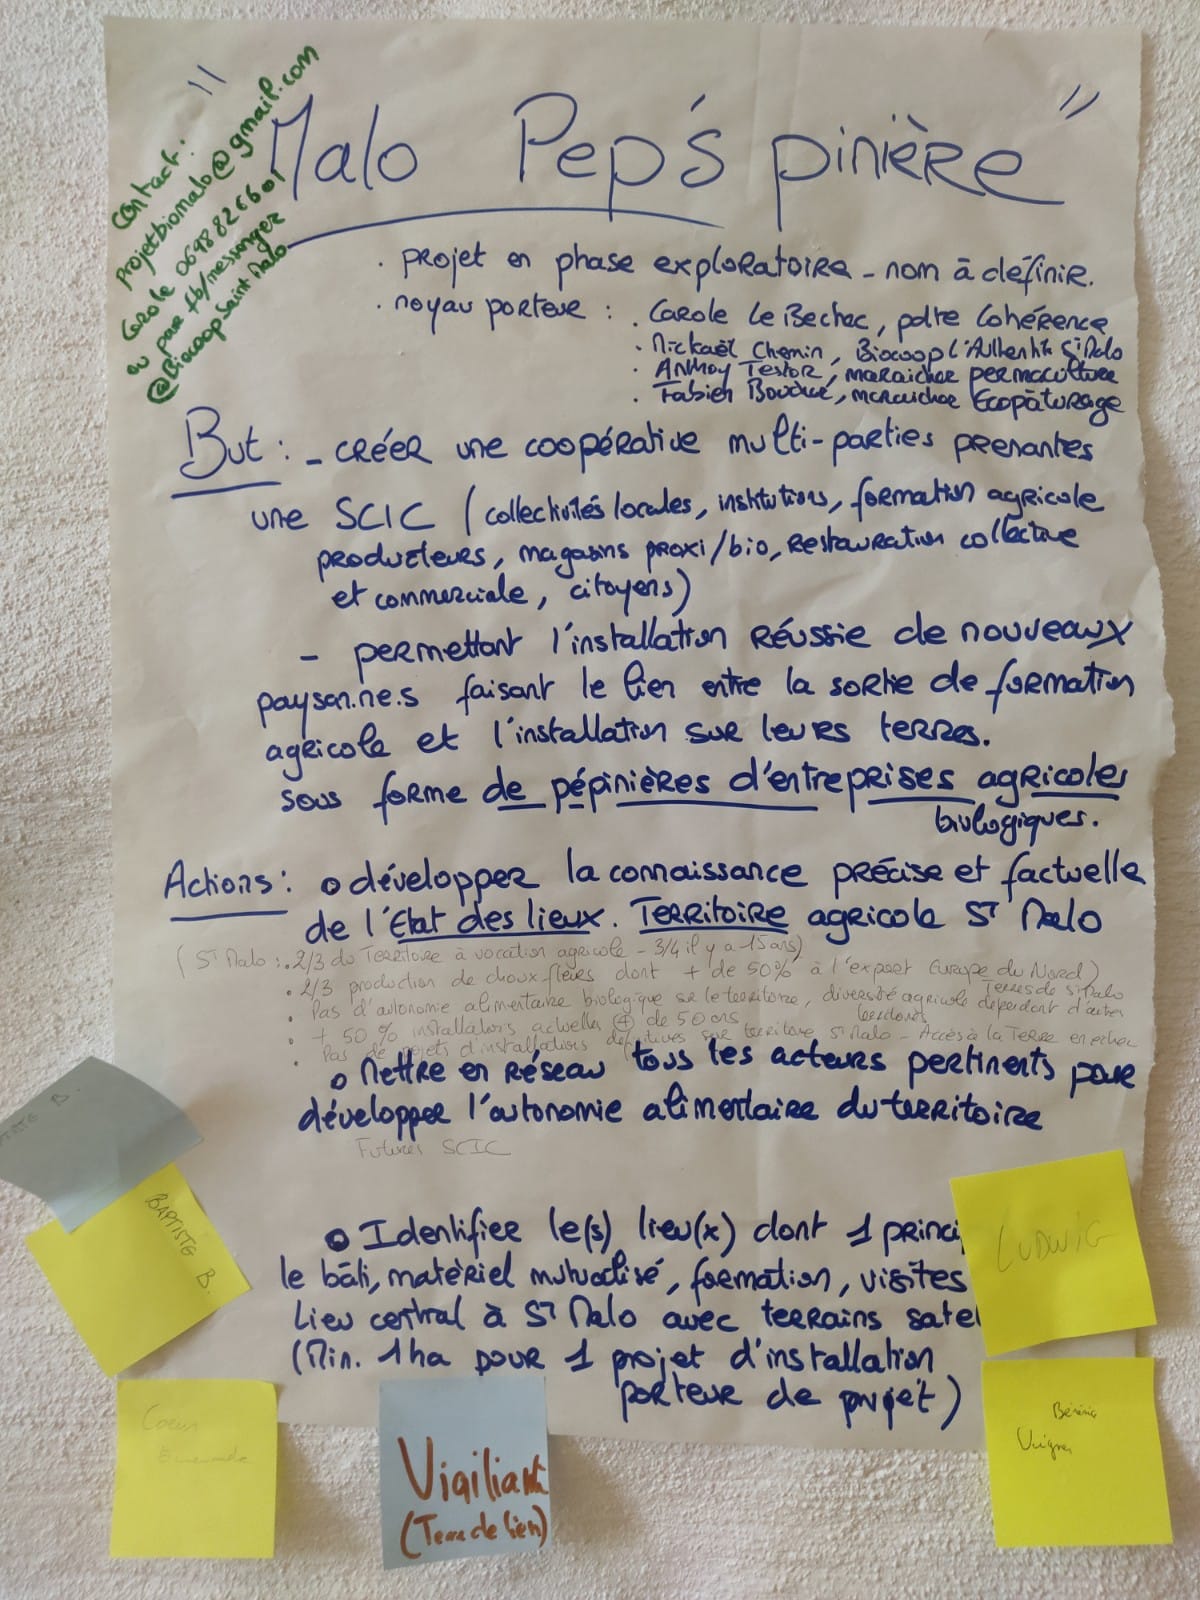 contact :
projetbiomalo@gmail.com
Carole 0698826601
ou par fb/messenger
@BiocoopSaintMalo
" Malo Pep's pinière "
. projet en phase exploratoire - nom à définir.
. noyau porteur : . Carole Le Bechec, pdte Cohérence
. Mickaël Chemin, Biocoop l'Authentik St Malo
. Anthony Testor, maraicher permaculture
. Fabien, maraicher Ecopâturage
But : - créer une coopérative multi-parties prenantes
une SCIC (collectivités locales, institutions, formation agricole
producteurs, magasins proxi/bio, restauration collective
et commerciale, citoyens)
- permettant l'installation réussie de nouveaux
paysan.ne.s faisant le lien entre la sortie de formation
agricole et l'installation sur leurs terres.
sous forme de pépinières d'entreprises agricoles
biologiques.
Actions : o développer la connaissance précise et factuelle
de l'Etat des lieux. Territoire agricole St Malo
(St Malo : . 2/3 du Territoire à vocation agricole - 3/4 il y a 15 ans)
. 2/3 production de choux-fleurs dont + de 50% à l'export Europe du Nord)
. Pas d'autonomie alimentaire biologique sur le territoire, diversité agricole dépendant d'autres
territoires
Terres de St Malo
. + 50 % installations actuelles + de 50 ans
. Pas de projets d'installations définitives sur territoire St Malo - Accès à la Terre en échec
o Mettre en réseau tous les acteurs pertinents pour
développer l'autonomie alimentaire du territoire
Futures SCIC
o Identifier le(s) lieu(x) dont 1 princi
le bâti, matériel mutualisé, formation, visites
Lieu central à St Malo avec terrains satel
(Min. 1ha pour 1 projet d'installation
porteur de projet)
B.
BAPTISTE B.
LUDWIG
Coeur
Emeraude
Vigiliante
(Terre de lien)